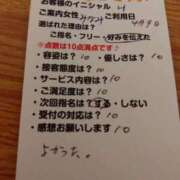 お客様のイニシャル
ご案内女性 ご利用日
選ばれた理由は?
ご指名・フリー・好みを伝えた
※点数は10点満点です!
・容姿は? 10 ・優しさは? 10
・接客態度は? 10
・サービス内容は? 10
・ご満足度は? 10
・次回指名は?する・しない
・受付の対応は? 10
感想お願いします 10
よかった。